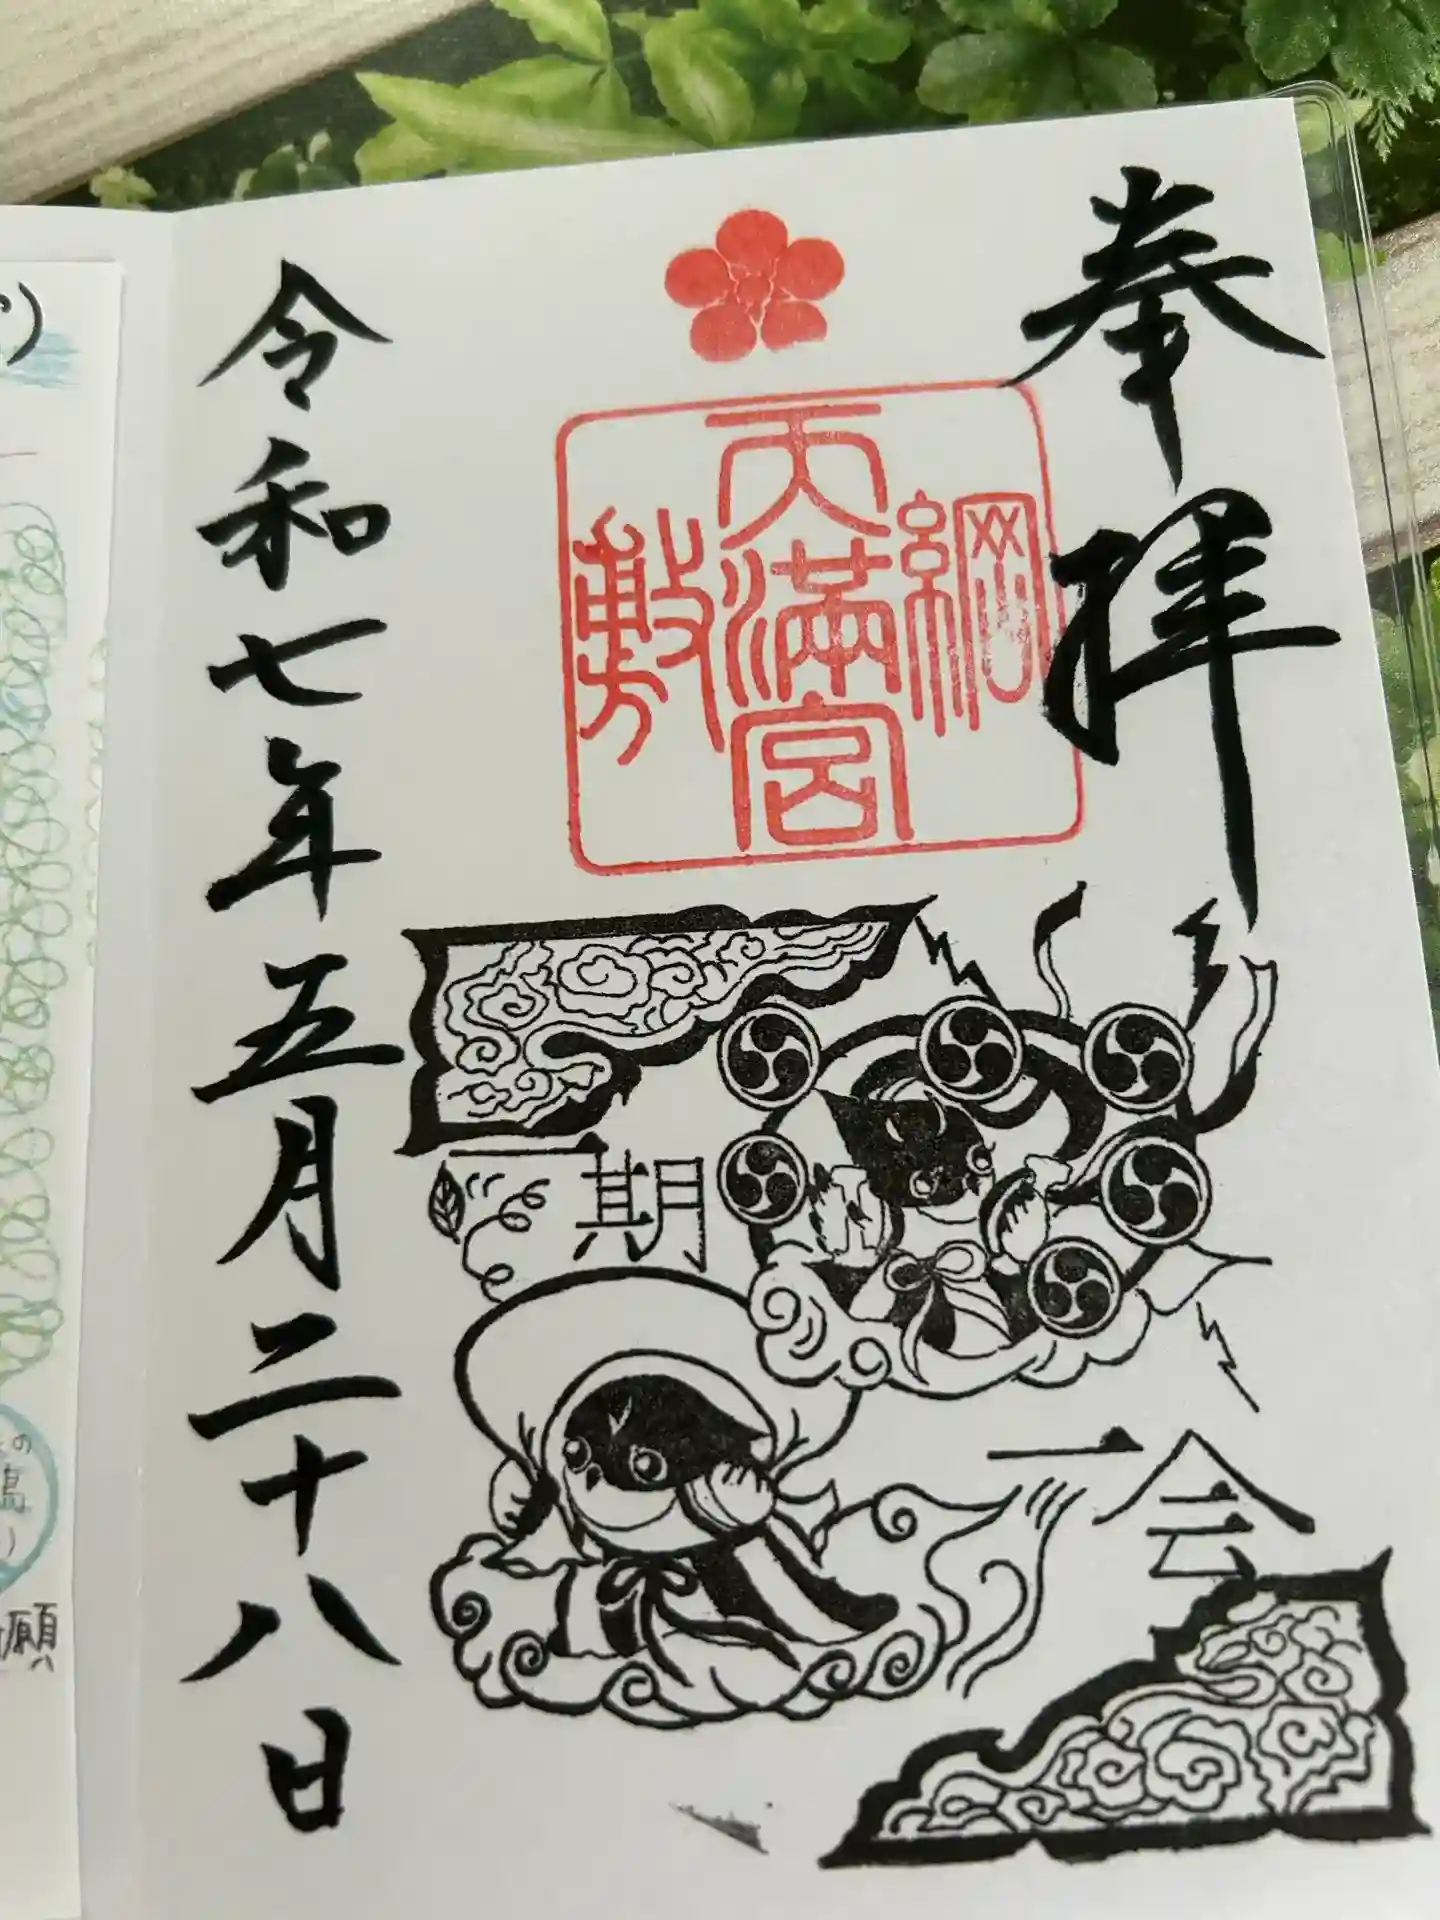 奉拝
綱敷
天満宮
一期
一会
令和七年五月二十八日
の
島
願